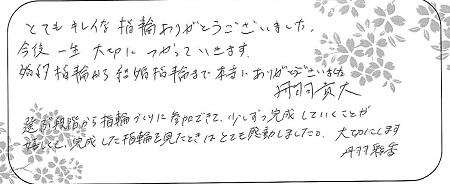 とてもキレイな指輪ありがとうございました。
今後一生大切につかっていきます。
婚約指輪から結婚指輪まで本当にありがとうございました
丹羽貢大
選ぶ段階から指輪づくりに参加できて、少しずつ完成していくことが
嬉しくて、完成した指輪を見たときはとても感動しました。大切にします
丹羽